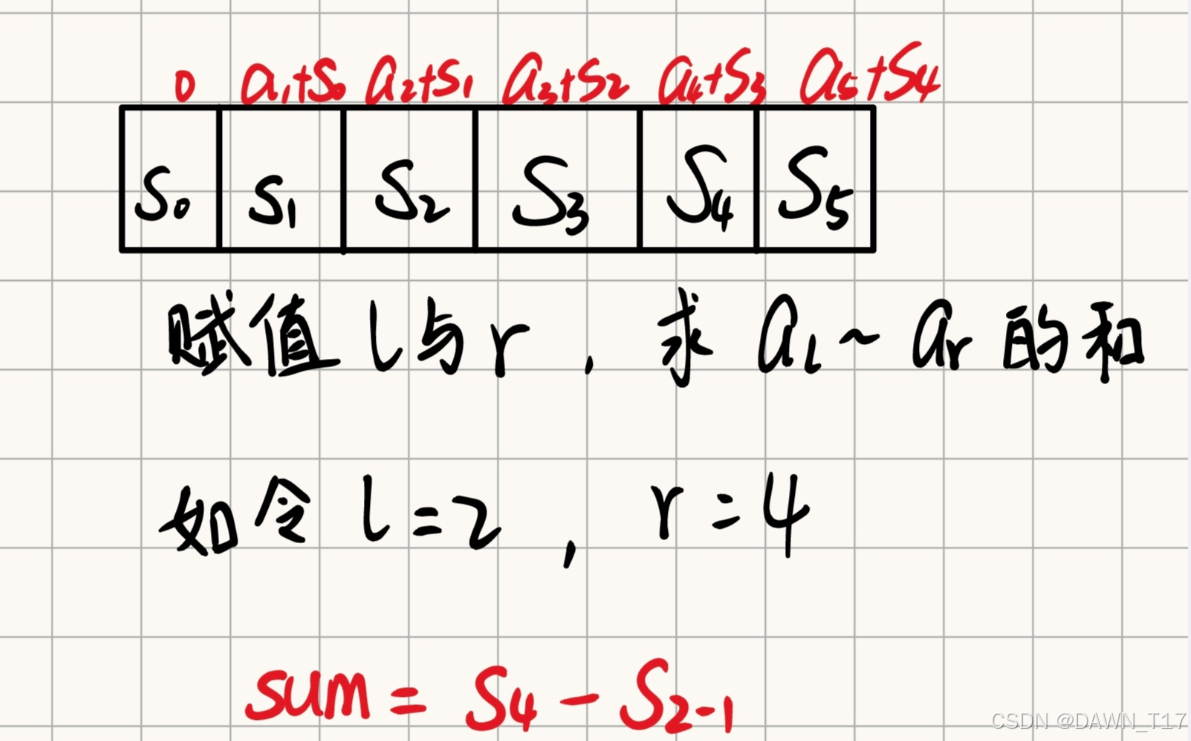 0 a₁+S₀ a₂+S₁ a₃+S₂ a₄+S₃ a₅+S₄
S₀ S₁ S₂ S₃ S₄ S₅
赋值 l与r , 求 aₗ ~ aᵣ 的和
如令 l=2 , r=4
sum = S₄ - S₂₋₁
CSDN @DAWN_T17